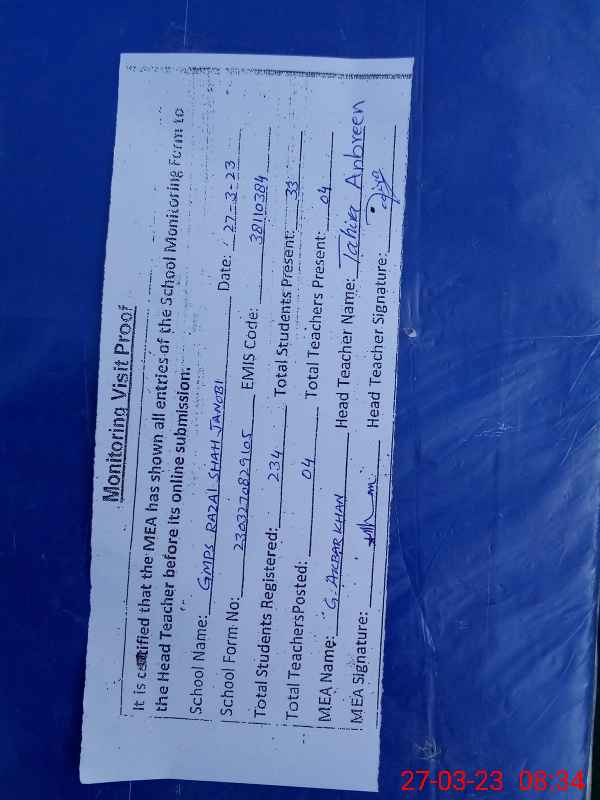 Monitoring Visit Proof
It is certified that the MEA has shown all entries of the School Monitoring Form to
the Head Teacher before its online submission.
School Name: GMPS RAZAI SHAH JANOBI Date: 27-3-23
School Form No: 2303270829105 EMIS Code: 38110384
Total Students Registered: 234 Total Students Present: 33
Total Teachers Posted: 04 Total Teachers Present: 04
MEA Name: G. AKBAR KHAN Head Teacher Name: Tahira Anbreen
MEA Signature: Head Teacher Signature:
27-03-23 08:34